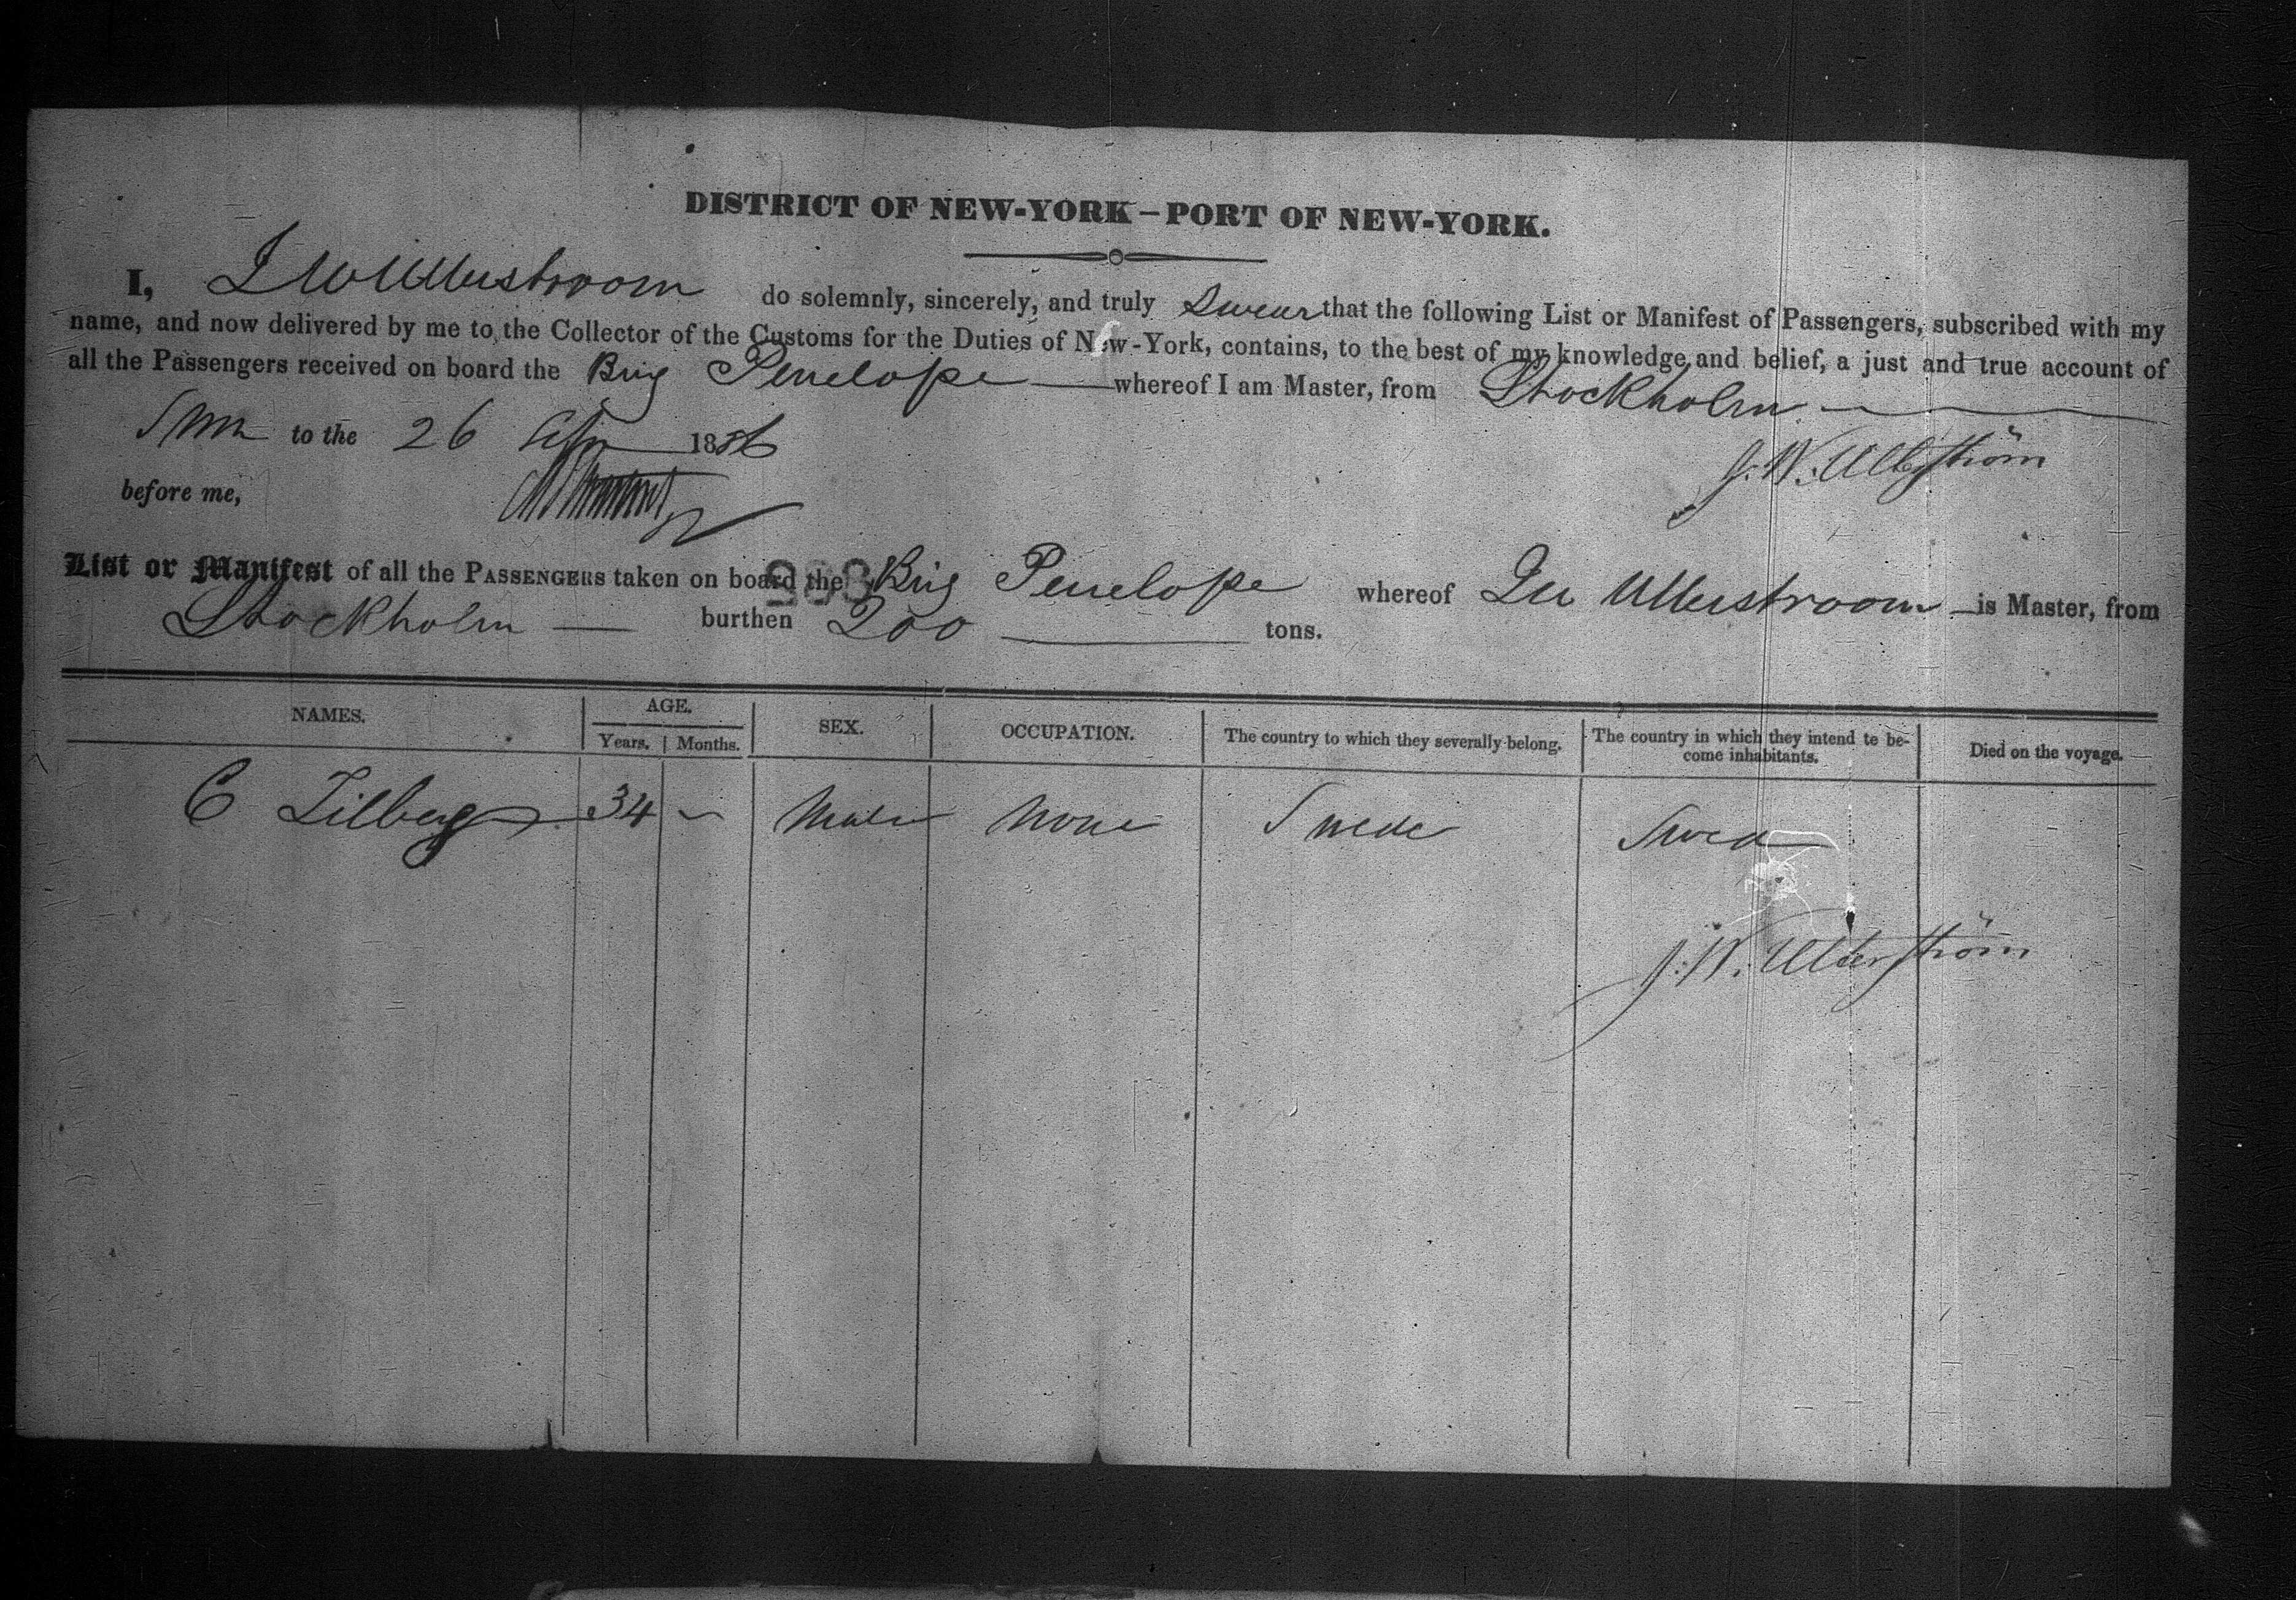 DISTRICT OF NEW-YORK – PORT OF NEW-YORK.
I, do solemnly, sincerely, and truly Swear that the following List or Manifest of Passengers, subscribed with my
name, and now delivered by me to the Collector of the Customs for the Duties of New-York, contains, to the best of my knowledge and belief, a just and true account of
all the Passengers received on board the Brig Penelope whereof I am Master, from Stockholm
to the 26 1856
J. W.
before me,
List or Manifest of all the PASSENGERS taken on board the Brig Penelope whereof is Master, from
Stockholm burthen 200 tons.
NAMES. AGE. Years. Months. SEX. OCCUPATION. The country to which they severally belong. The country in which they intend te become inhabitants. Died on the voyage.
C Lilberg 34 Male None Swede Swed
J. W.